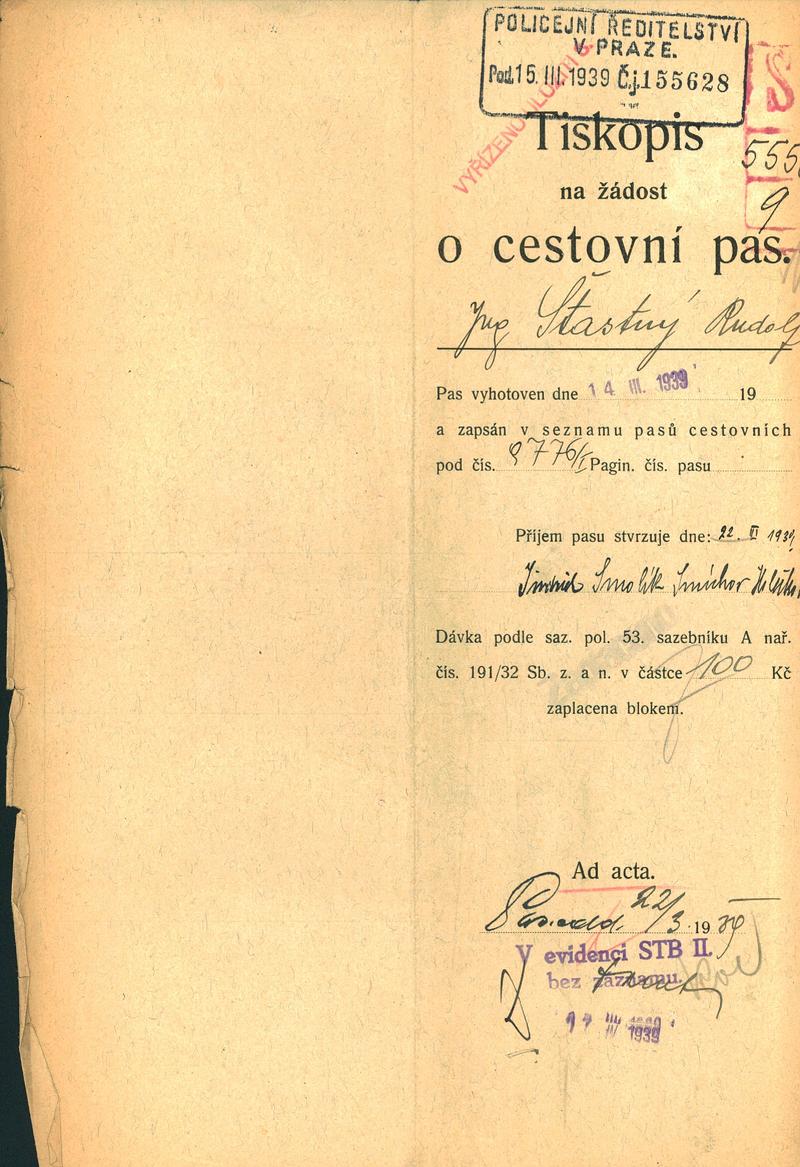 POLICEJNÍ ŘEDITELSTVÍ
V PRAZE.
Pod. 15. III. 1939 Čj. 155628
VYŘÍZENO
S
555
9
Tiskopis
na žádost
o cestovní pas.
Ing Šťastný Rudolf
Pas vyhotoven dne 14. III. 1939 19
a zapsán v seznamu pasů cestovních
pod čís. 9776/I Pagin. čís. pasu
Příjem pasu stvrzuje dne: 22. 1939
Jindřich Smolík Smíchov
Dávka podle saz. pol. 53. sazebníku A nař.
čís. 191/32 Sb. z. a n. v částce 100 Kč
zaplacena blokem.
Ad acta.
22/3 1939
V evidenci STB II.
bez záznamu.
17 III 1939